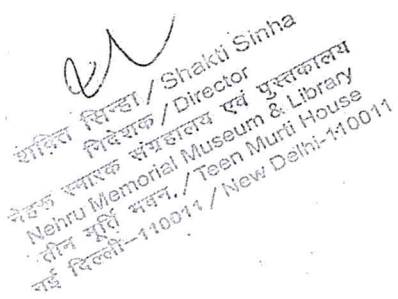 शक्ति सिन्हा / Shakti Sinha
निदेशक / Director
नेहरू स्मारक संग्रहालय एवं पुस्तकालय
Nehru Memorial Museum & Library
तीन मूर्ति भवन. / Teen Murti House
नई दिल्ली-110011 / New Delhi-110011